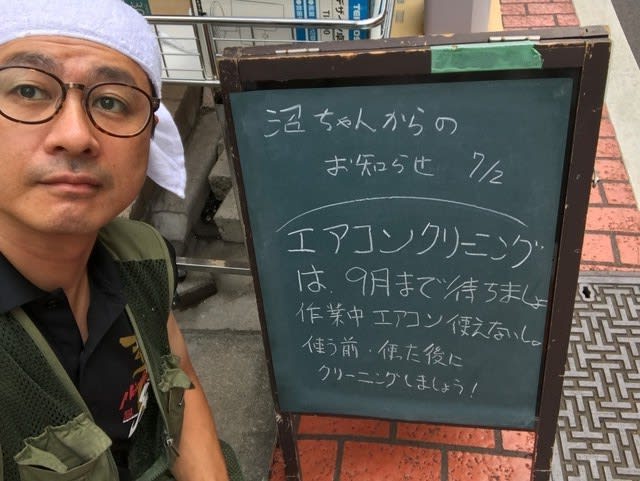 沼ちゃんからの
お知らせ 7/2
エアコンクリーニング
は、9月まで待ちましょ
作業中エアコン使えないし。
使う前・使った後に
クリーニングしましょう!